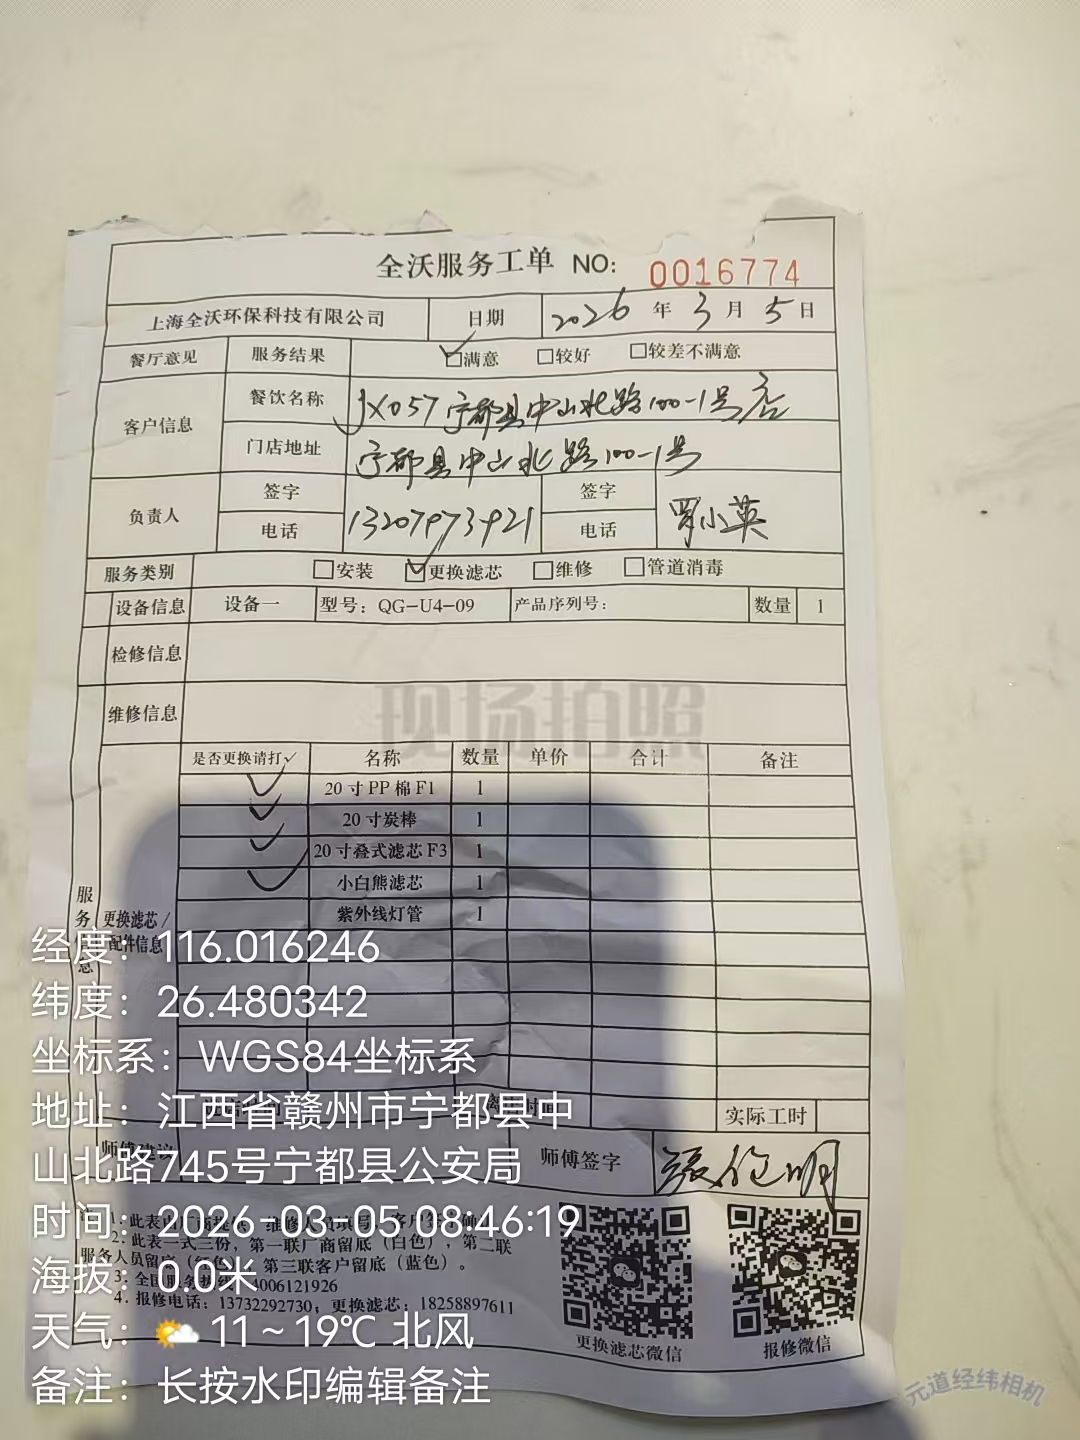 全沃服务工单 NO: 0016774
上海全沃环保科技有限公司 日期 2026年3月5日
餐厅意见 服务结果 ☑满意 □较好 □较差不满意
客户信息 餐饮名称 JX057宁都县中山北路100-1号店
门店地址 宁都县中山北路100-1号
负责人 签字 签字 罗小英
电话 13207973921 电话
服务类别 □安装 ☑更换滤芯 □维修 □管道消毒
设备信息 设备一 型号：QG-U4-09 产品序列号： 数量 1
检修信息
维修信息
现场拍照
是否更换请打✓ 名称 数量 单价 合计 备注
✓ 20寸PP棉F1 1
✓ 20寸炭棒 1
✓ 20寸叠式滤芯F3 1
✓ 小白熊滤芯 1
紫外线灯管 1
服务信息 更换滤芯/配件信息
经度：116.016246
纬度：26.480342
坐标系：WGS84坐标系
地址：江西省赣州市宁都县中
山北路745号宁都县公安局
时间：2026-03-05 08:46:19
海拔：0.0米
天气： 11～19℃ 北风
备注：长按水印编辑备注
实际工时
师傅建议 师傅签字
2. 此表一式三份，第一联厂商留底（白色），第二联
服务人员留底 第三联客户留底（蓝色）。
4. 报修电话：13732292730；更换滤芯：18258897611
更换滤芯微信 报修微信
元道经纬相机